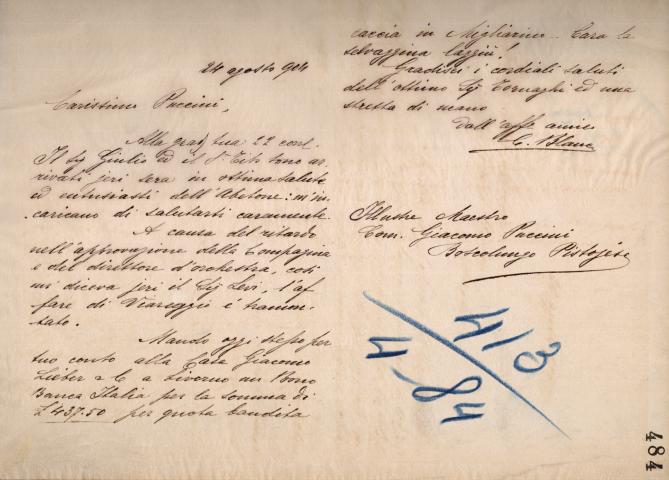 24 agosto 904
Carissimo Puccini,
Alla grad/ tua 22 corrt.
Il Sig Giulio ed il Sr Tito sono ar,
rivati jeri sera in ottima salute
ed entusiasti dell'Abetone: m'in,
caricano di salutarti caramente.
A causa del ritardo
nell'approvazione della Compagnia
e del direttore d'orchestra, così
mi diceva jeri il Sig Levi, l'af
fare di Viareggio è tramon,
tato.
Mando oggi stesso per
tuo conto alla Casa Giacomo
Lieber & C a Livorno un Bono
Banca Italia per la somma di
£ 437.50 per quota bandita
caccia in Migliarino. Cara la
selvaggina laggiù!
Gradisci i cordiali saluti
dell'ottimo Sig Tornaghi ed una
stretta di mano
dall'affo amico
C. Blanc
Illustre Maestro
Com. Giacomo Puccini
Boscolungo Pistojese
4/3
4-84
484